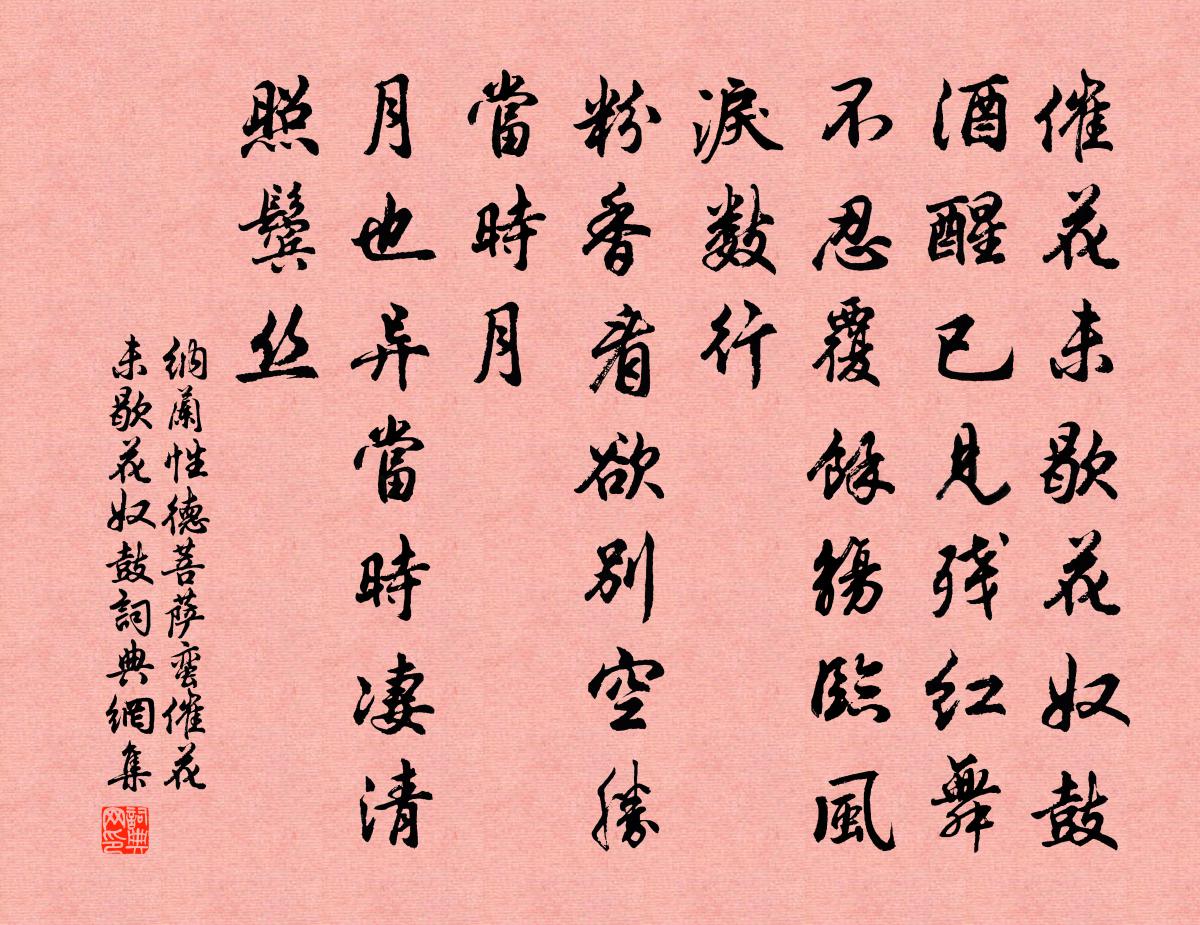 催花未歇花奴鼓
酒醒已見残红舞
不忍覆餘觴臨風
淚數行
粉香看欲别空勝
當時月
月也异當時凄清
照鬓丝
纳蘭性德菩萨蛮催花
未歇花奴鼓詞典網集
詞典
网印